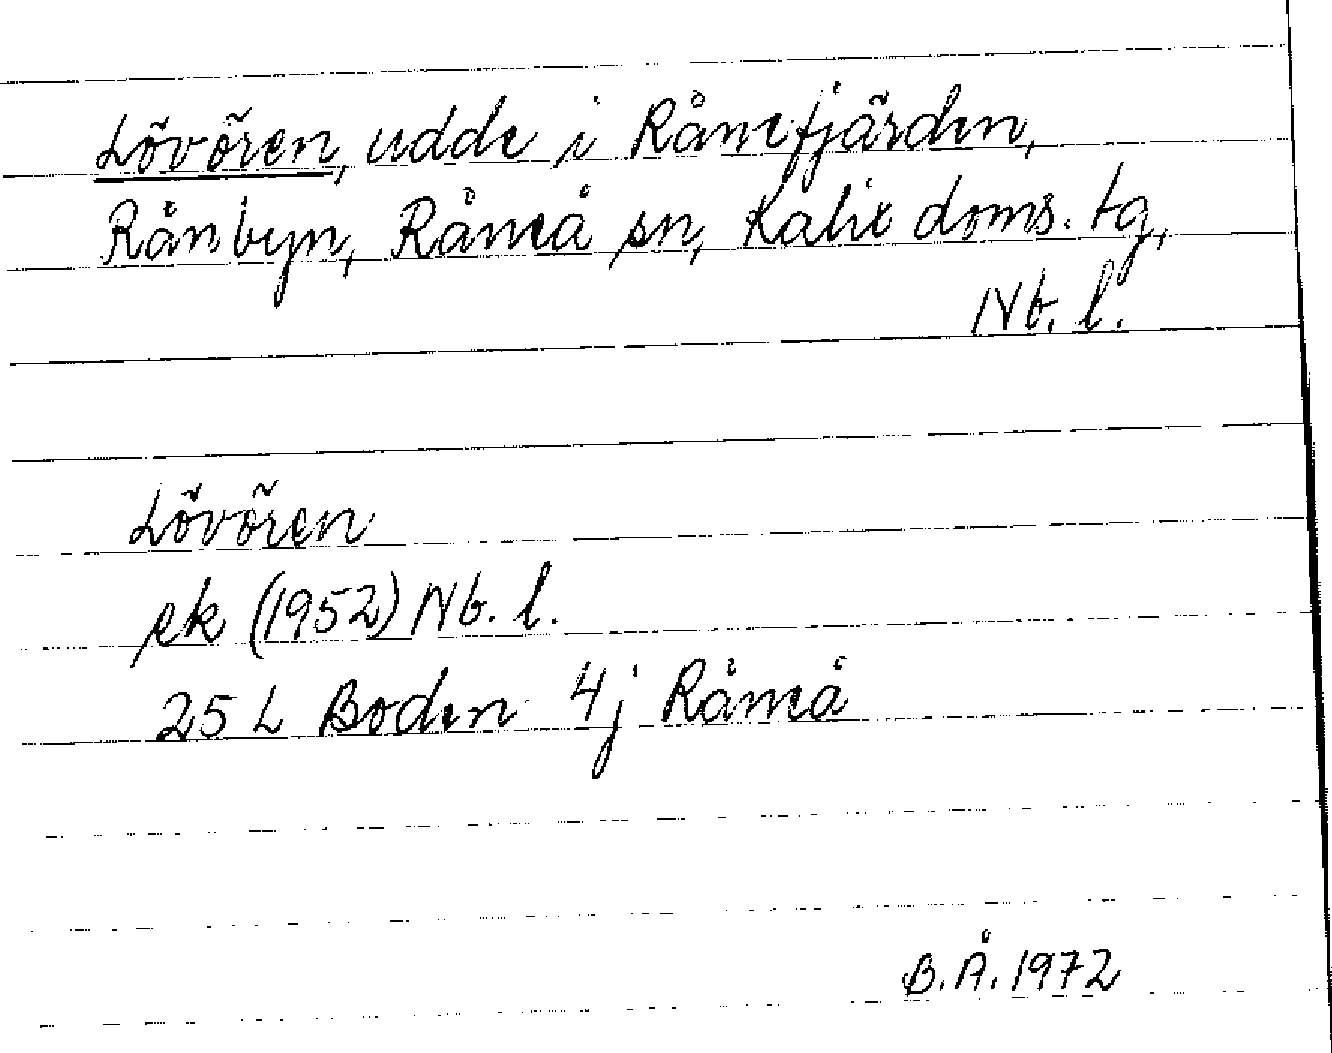 Lövören, udde i Rånefjärden,
Rånbyn, Råneå sn, Kalix doms. tg,
Nb. l.
Lövören
ek (1952) Nb. l.
25 L Boden 4j Råneå
B.Å. 1972